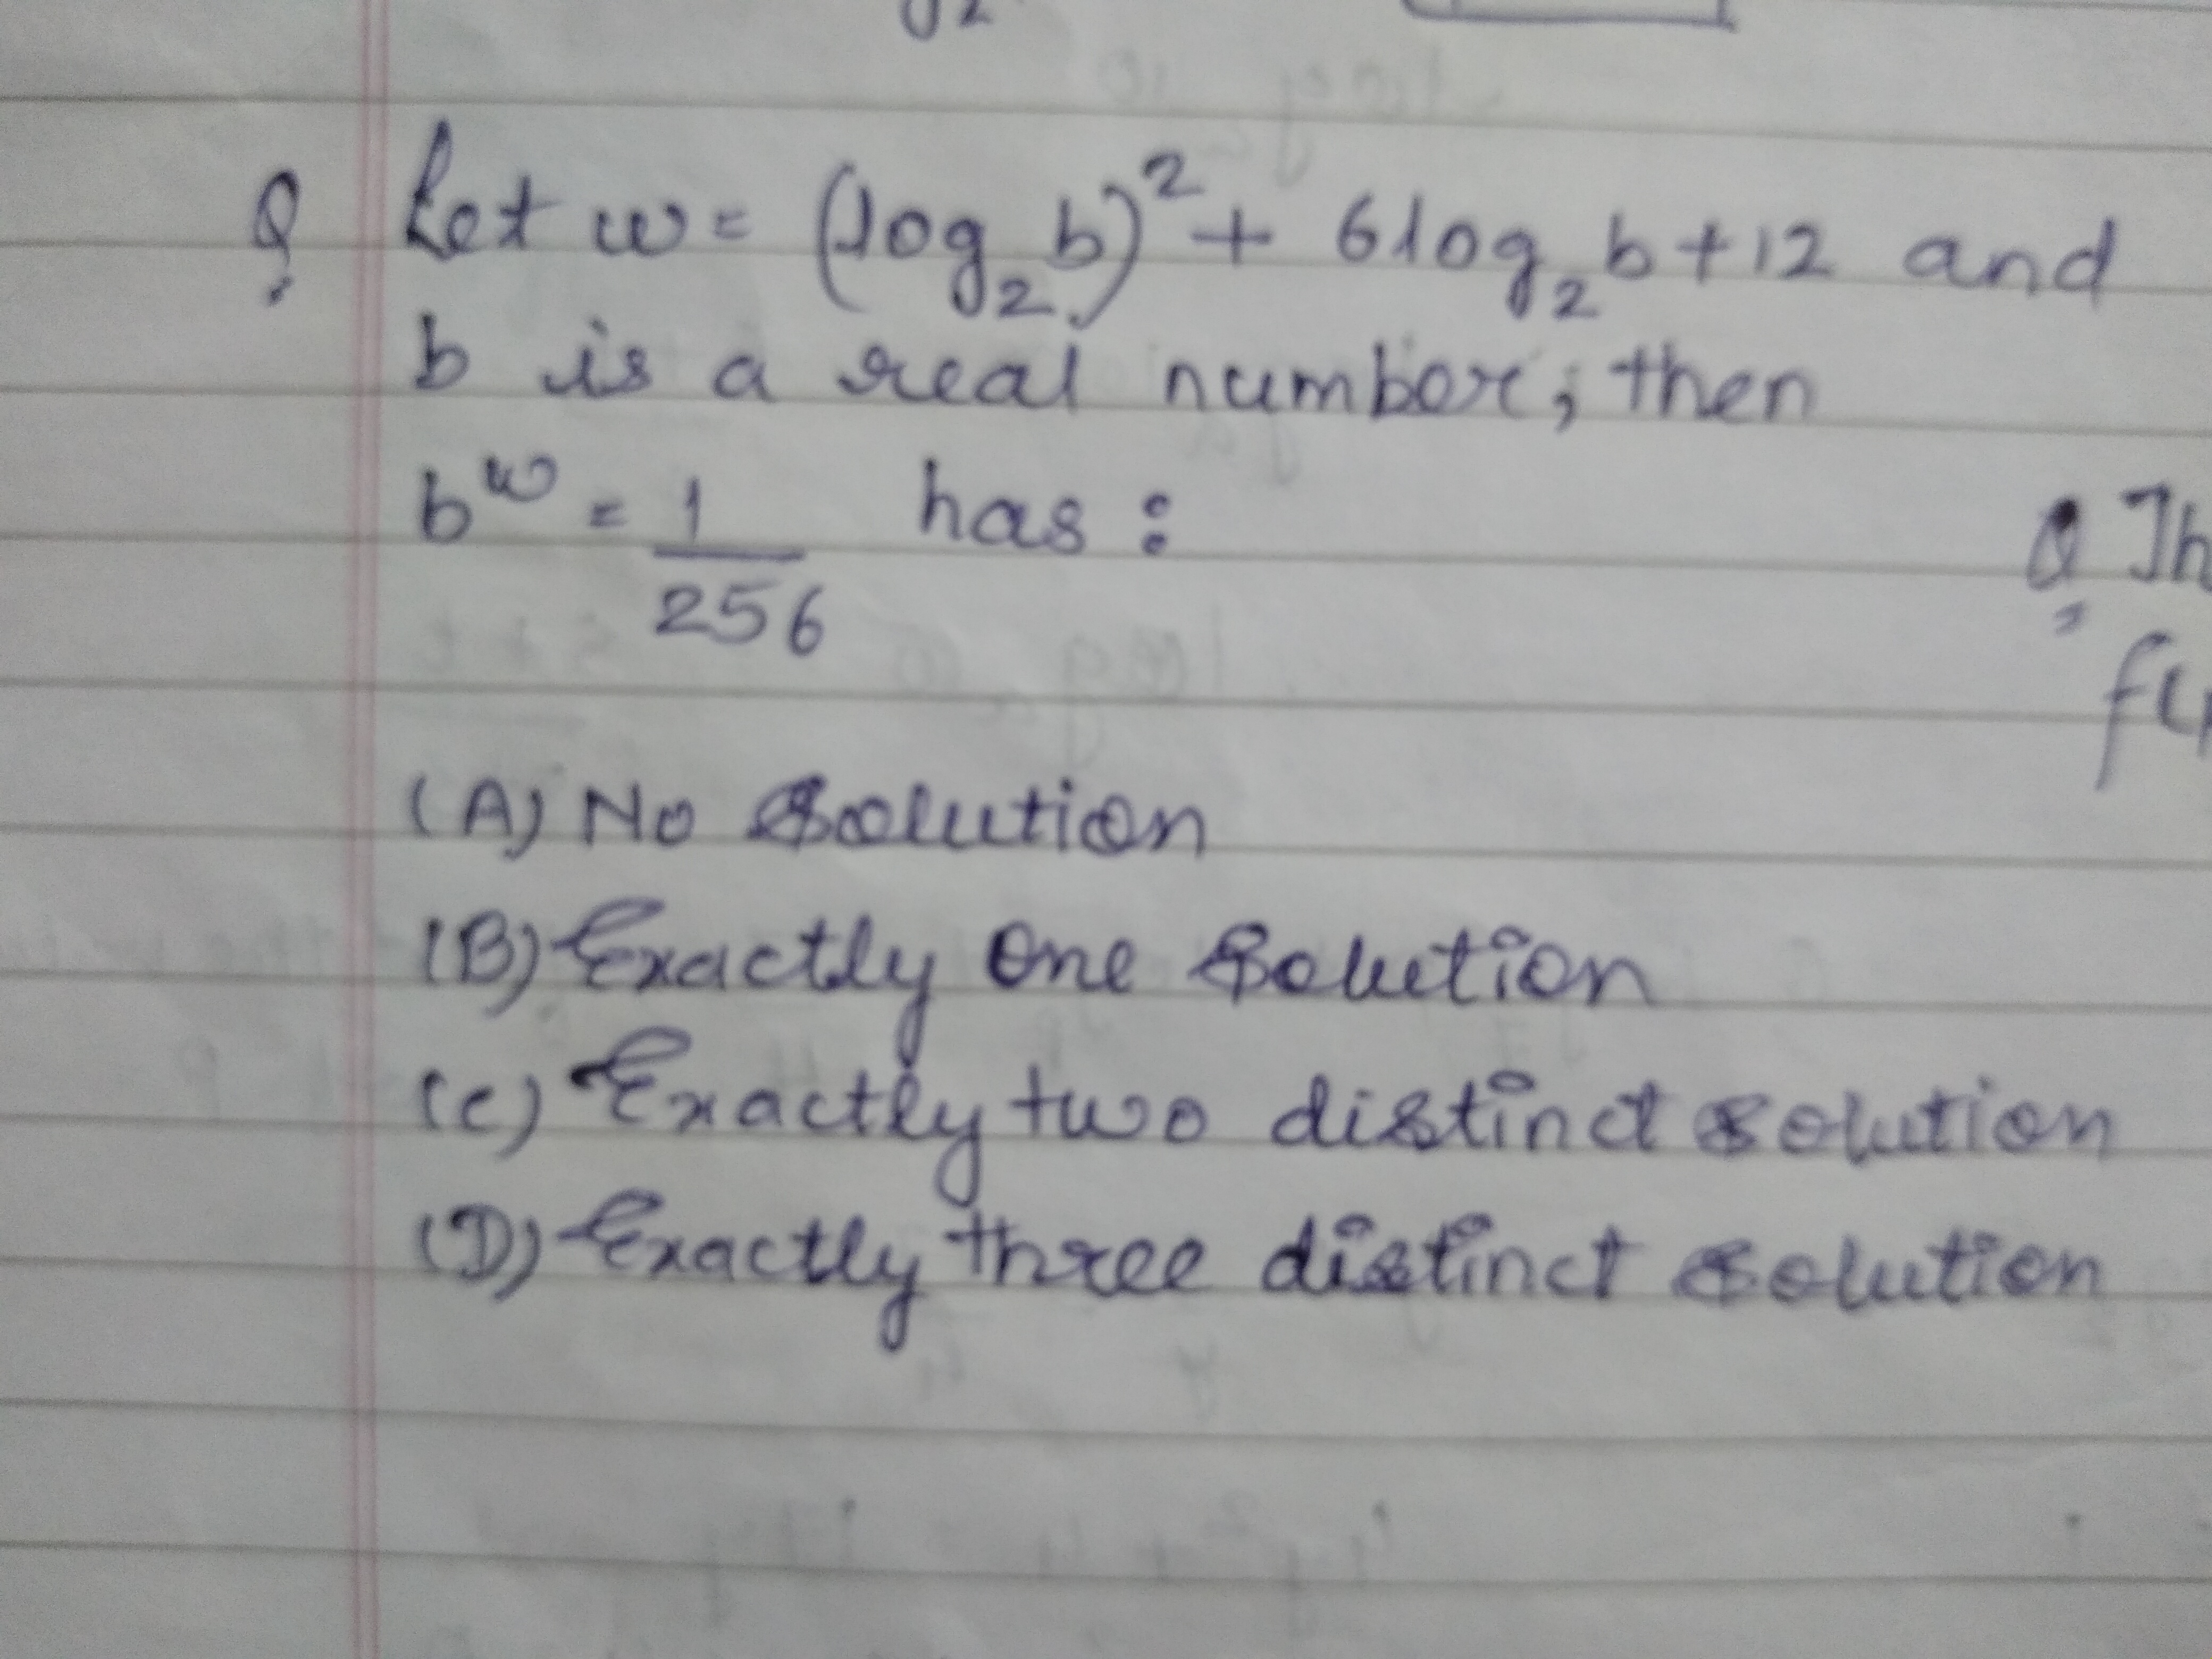 Q Let w = (log₂b)² + 6log₂b + 12 and
b is a real number, then
b^w = 1/256 has :
Q Th
(A) No Solution
(B) Exactly One Solution
(C) Exactly two distinct solution
(D) Exactly three distinct solution